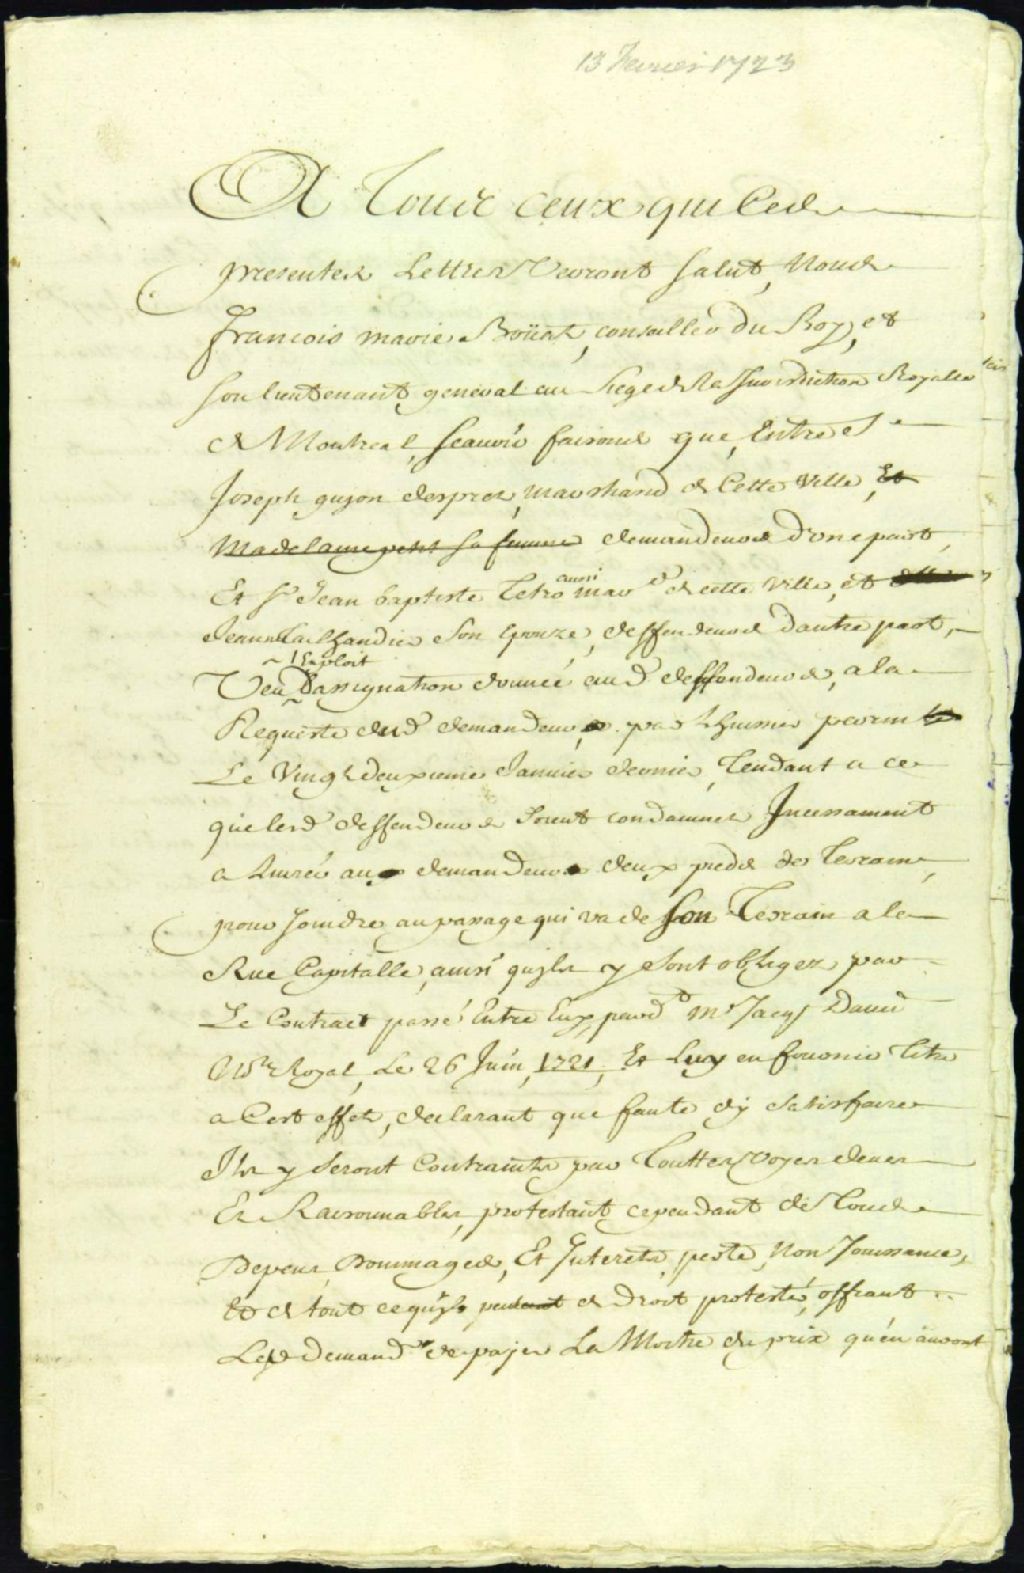 13 Fevrier 1723
A Tous ceux qui Ces
presentes Lettres Verront Salut, Nous
François marie Boüat, conseiller du Roy, et
Son lieutenant general au Siege de la Jurisdiction Royalle
de Montreal, Scavoir faisons que, Entre Sr
Joseph guyon desprez, marchand de Cette Ville, Et
Madelaine petit Sa femme demandeurs d'une part,
Et Sr Jean baptiste Tetro aussi mard de cette Ville, et
Jeanne Tailhandier Son Epouze, deffendeurs dautre part,
Veu l'Exploit Dassignation donnée aud. deffendeurs, a la
Requeste dud. demandeur, par Lhuissier
Le Vingt deuxieme Janvier dernier, Tendant a ce
que lesd. deffendeurs Soient condamnez Incessament
a Livrer au demandeur deux pieds de Terrain,
pour Joindre au passage qui va de Son Terrain a la
Rue Capitalle, ainsi quils y Sont obligez par
Le Contract passé Entre Eux, pard. Me Jacq. David
Nre Royal, Le 26 Juin, 1721, Et Luy en fournir titre
a Cest effet, declarant que faute dy Satisfaire
Ils y Seront Contraints par Touttes Voyes deues
Et Raisonnables, protestant cependant de Tous
Depens, Dommages, Et Interets, perte, Non Jouissance,
Et de tout ce quil de droit protesté, offrant
Led. demandr de payer La Moitie du prix qu'en auront